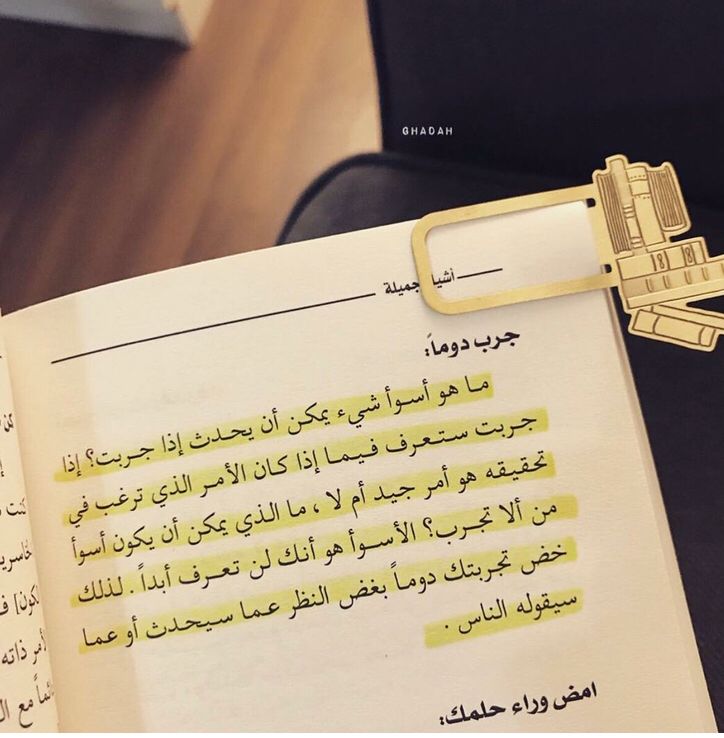 GHADAH
أشيا جميلة
جرب دوماً:
ما هو أسوأ شيء يمكن أن يحدث إذا جربت؟ إذا
جربت ستعرف فيما إذا كان الأمر الذي ترغب في
تحقيقه هو أمر جيد أم لا ، ما الذي يمكن أن يكون أسوأ
من ألا تجرب؟ الأسوأ هو أنك لن تعرف أبداً . لذلك
خض تجربتك دوماً بغض النظر عما سيحدث أو عما
سيقوله الناس .
امض وراء حلمك:
كنت
[لكون] ف
لأمر ذاته
ئماً مع ال